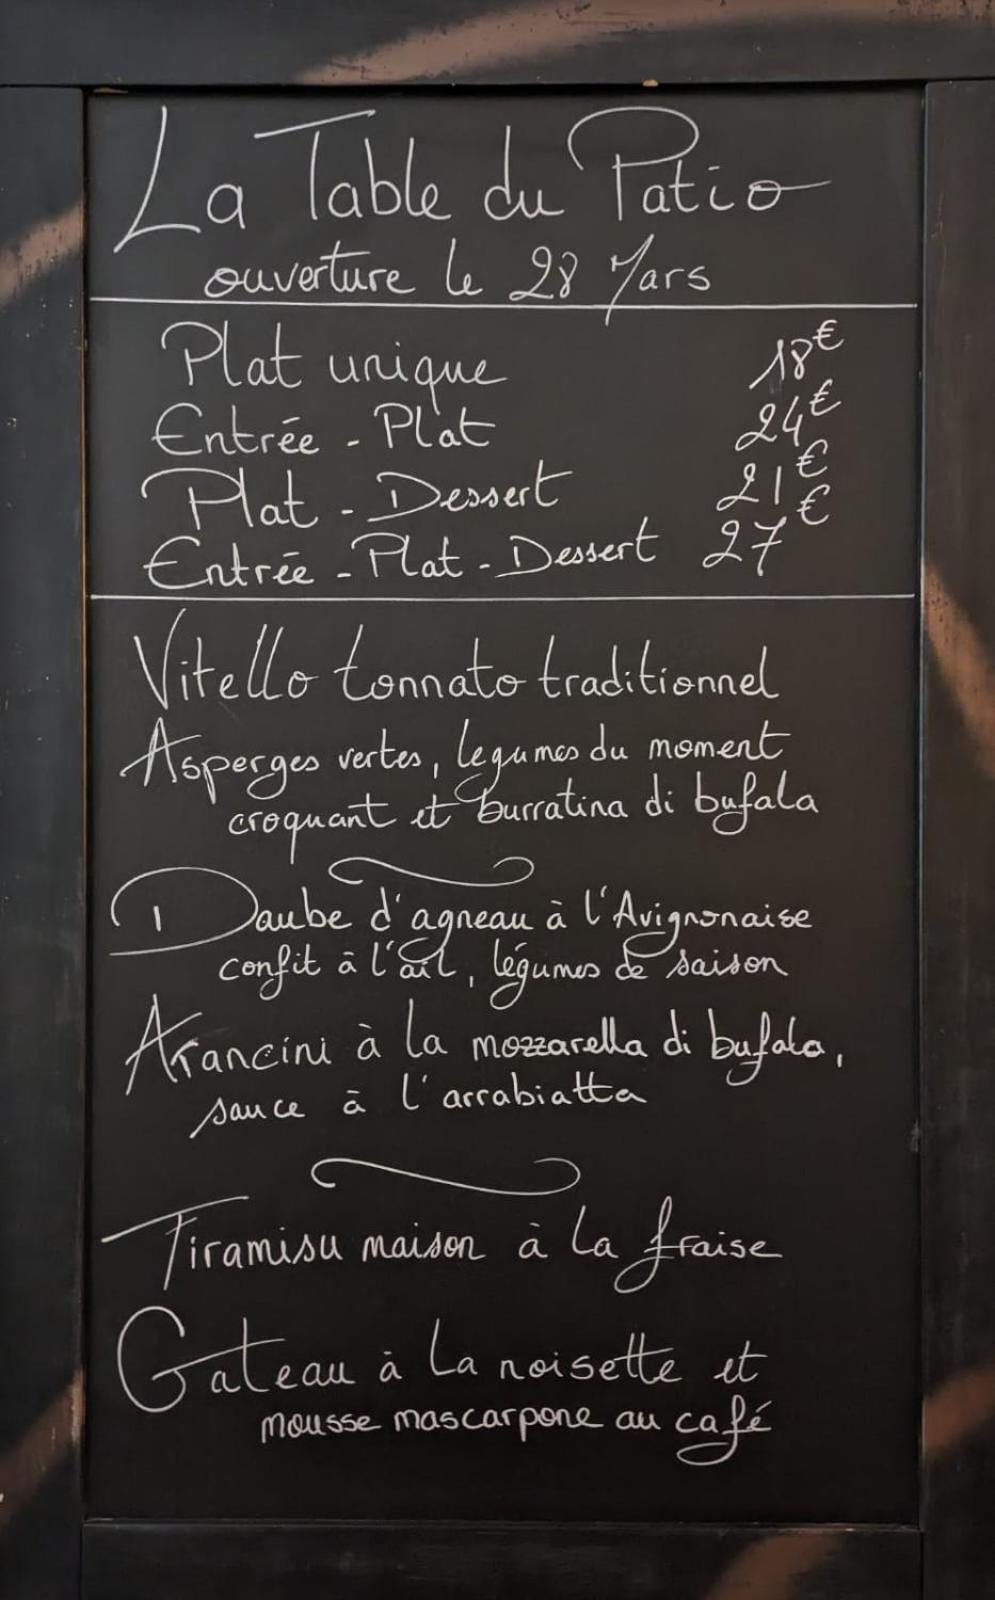 La Table du Patio
ouverture le 28 Mars
Plat unique 18€
Entrée - Plat 24€
Plat - Dessert 21€
Entrée - Plat - Dessert 27€
Vitello tonnato traditionnel
Asperges vertes, légumes du moment
croquant et burratina di bufala
Daube d'agneau à l'Avignonaise
confit à l'ail, légumes de saison
Arancini à la mozzarella di bufala,
sauce à l'arrabiatta
Tiramisu maison à la fraise
Gateau à la noisette et
mousse mascarpone au café